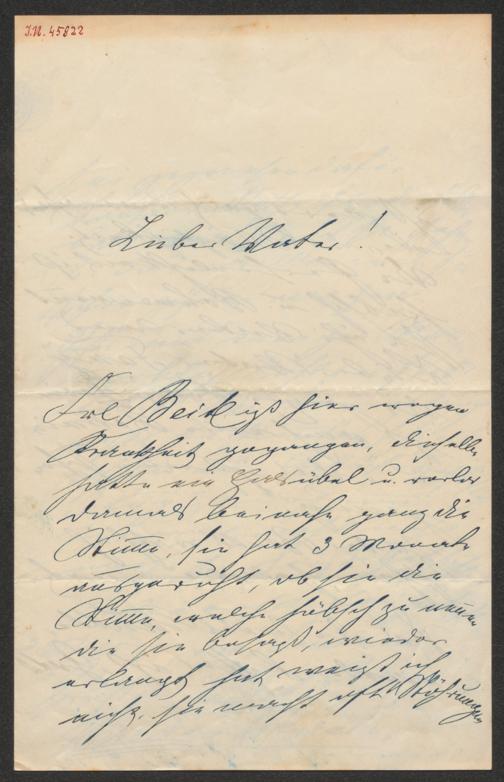 I.N. 45822
Lieber Vater!
Frl Beik ist hier wegen
Krankheit gegangen, dieselbe
hatte ein Halsübel u. verlor
damals beinahe ganz die
Stimme, sie hat 3 Monate
ausgeruht, ob sie die
Stimme, welche hübsch zu nennen
die sie besaß, wieder
erlangt hat weiß ich
nicht, sie macht oft